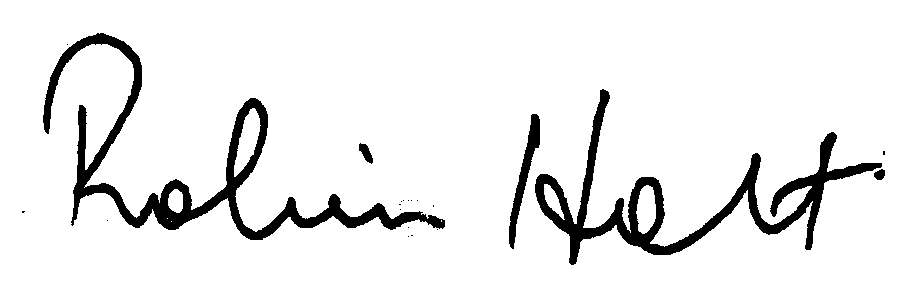 Robin Holt.